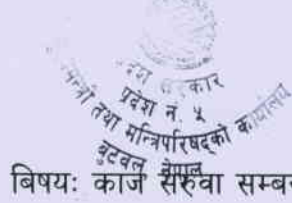 प्रदेश सरकार
प्रदेश नं. ५
मन्त्री तथा मन्त्रिपरिषद्को कार्यालय
बुटवल नेपाल
बिषयः काज सरुवा सम्ब